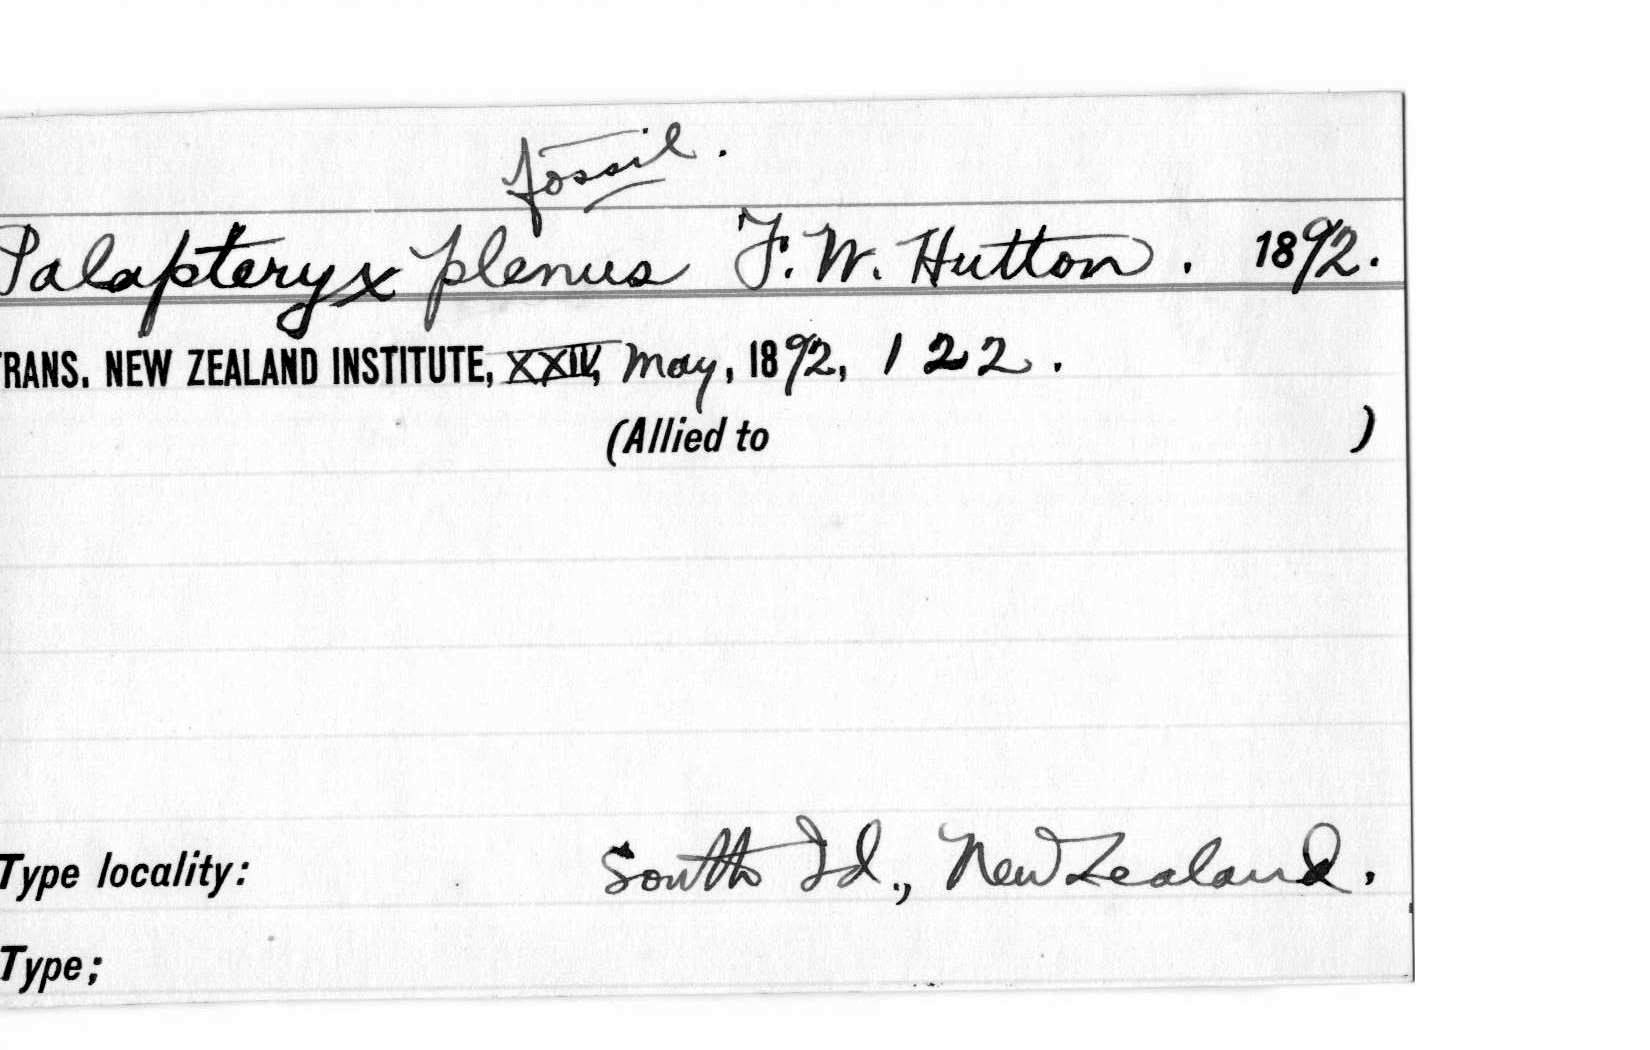 fossil.
Palapteryx plenus F. W. Hutton. 1892.
TRANS. NEW ZEALAND INSTITUTE, XXIV, May, 1892, 122.
(Allied to )
Type locality: South Id., New Zealand.
Type;